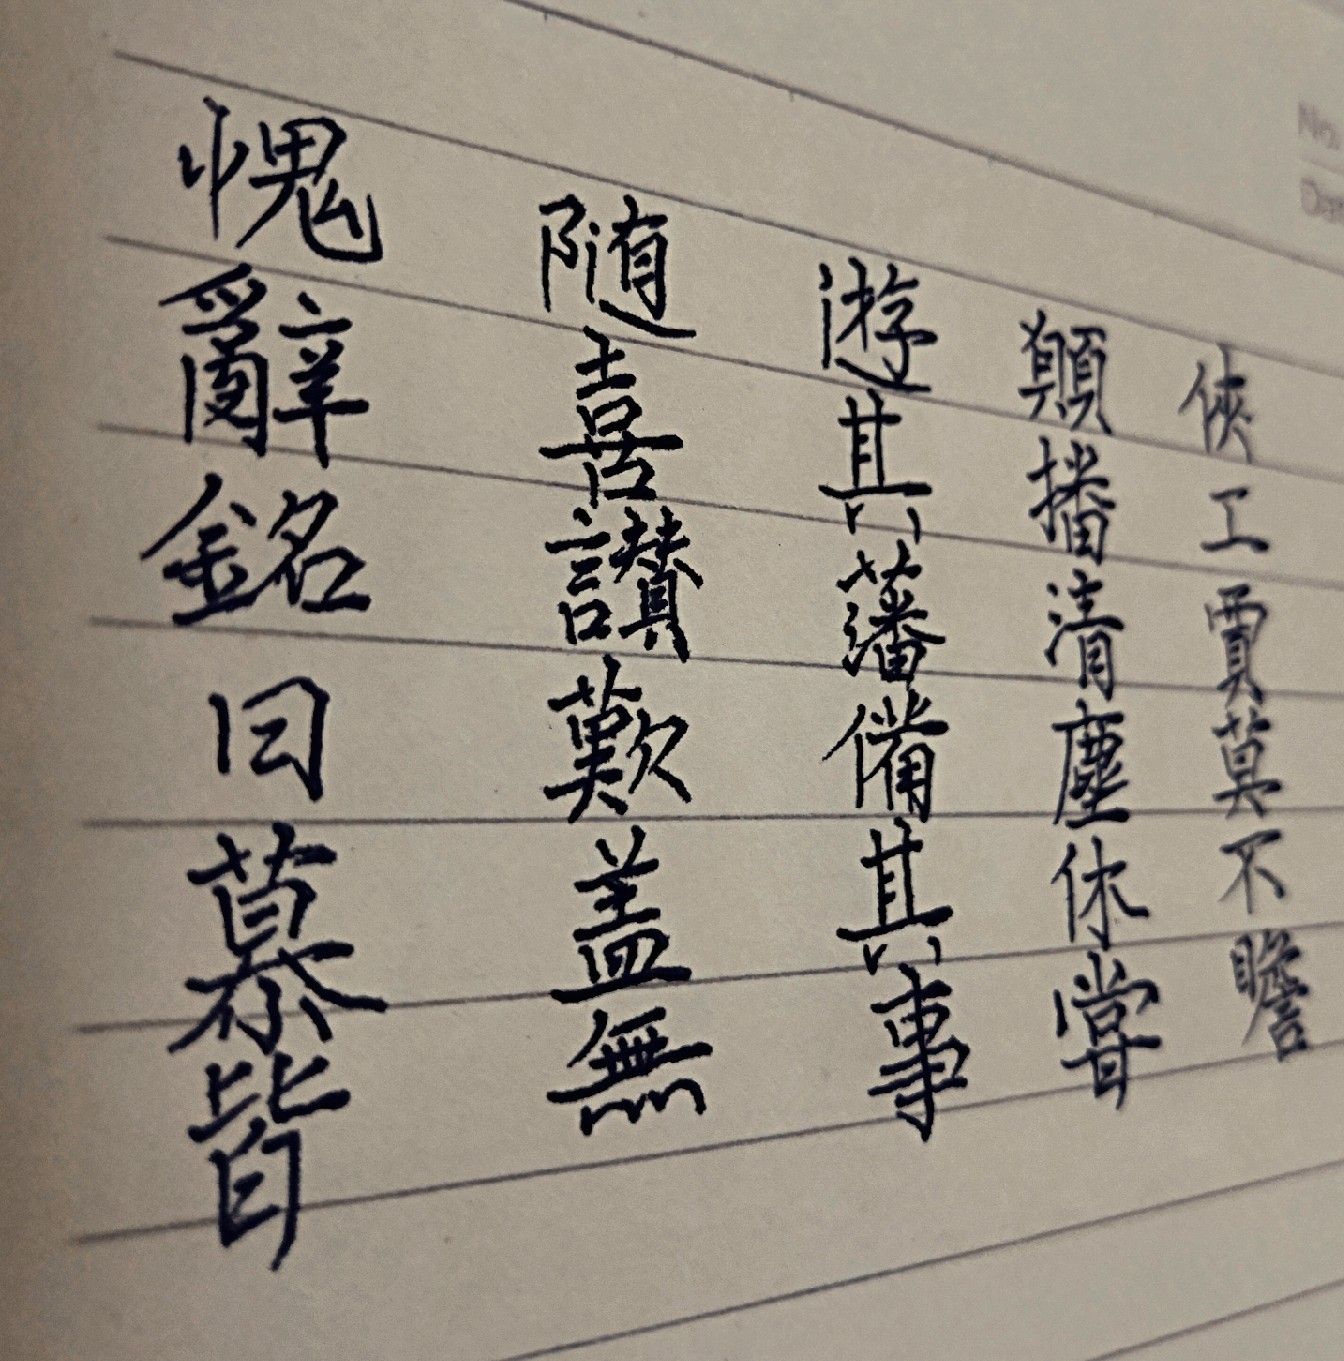 No.
俠工賈莫不瞻
願播清塵休嘗
遊其藩備其事
隨喜讚歎蓋無
愧辭銘曰慕皆